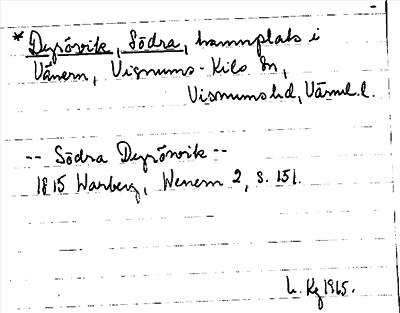 * Dyrövik, Södra, hamnplats i
Vänern, Visnums-Kils sn,
Visnums hd, Värml. l.
-- Södra Dyrörvik --
1815 Warberg, Wenern 2, s. 151.
1965.